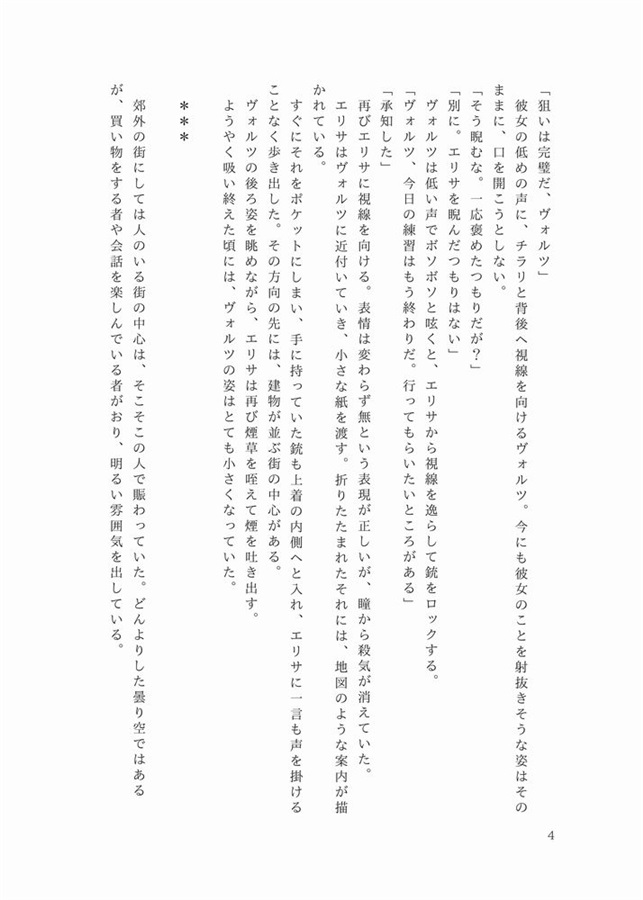 「狙いは完璧だ、ヴォルツ」
彼女の低めの声に、チラリと背後へ視線を向けるヴォルツ。今にも彼女のことを射抜きそうな姿はその
ままに、口を開こうとしない。
「そう睨むな。一応褒めたつもりだが？」
「別に。エリサを睨んだつもりはない」
ヴォルツは低い声でボソボソと呟くと、エリサから視線を逸らして銃をロックする。
「ヴォルツ、今日の練習はもう終わりだ。行ってもらいたいところがある」
「承知した」
再びエリサに視線を向ける。表情は変わらず無という表現が正しいが、瞳から殺気が消えていた。
エリサはヴォルツに近付いていき、小さな紙を渡す。折りたたまれたそれには、地図のような案内が描
かれている。
すぐにそれをポケットにしまい、手に持っていた銃も上着の内側へと入れ、エリサに一言も声を掛ける
ことなく歩き出した。その方向の先には、建物が並ぶ街の中心がある。
ヴォルツの後ろ姿を眺めながら、エリサは再び煙草を咥えて煙を吐き出す。
ようやく吸い終えた頃には、ヴォルツの姿はとても小さくなっていた。
＊＊＊
郊外の街にしては人のいる街の中心は、そこそこの人で賑わっていた。どんよりした曇り空ではある
が、買い物をする者や会話を楽しんでいる者がおり、明るい雰囲気を出している。
4